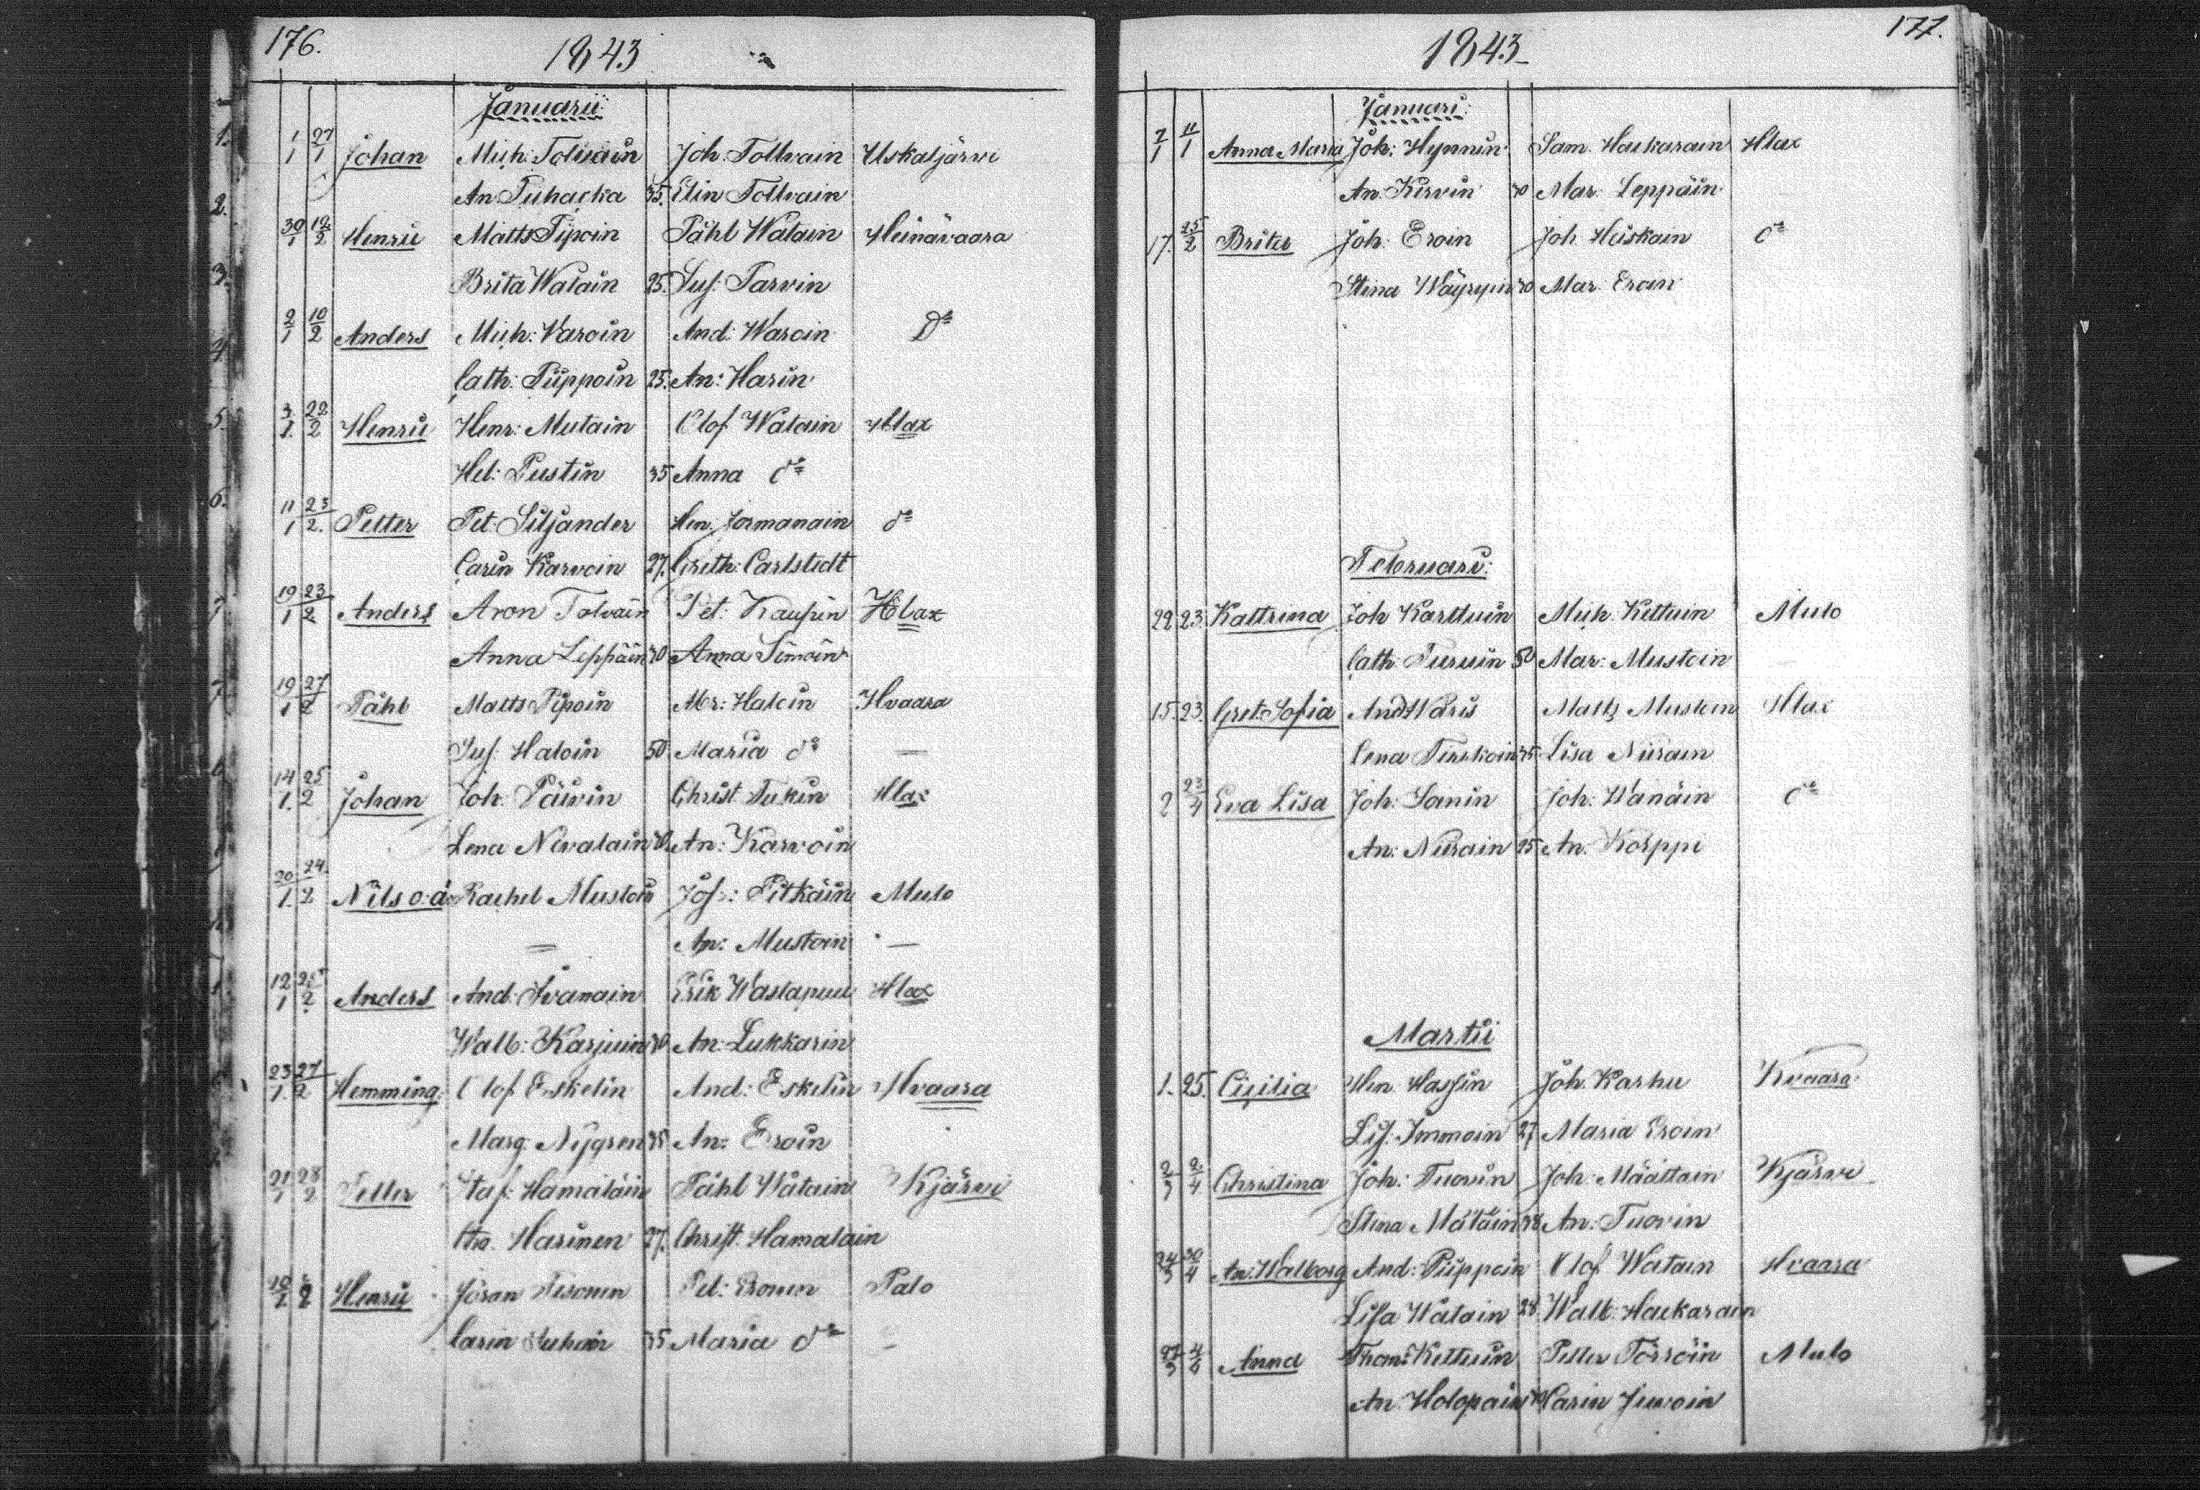 176.
1843
Januarii
1. 1/1 27/1 Johan Mich: Tolvain Joh. Tollvain Uskaljärvi
An Puhacka 35. Elin Tollvain
2.
30/1 12/2 Henric Matts Pipoin Påhl Watain Heinävaara
3. Brita Watain 25. Sus: Tarvin
2/1 10/2 Anders Mich: Waroin And: Waroin Do
4.
Cath: Piippoin 25. An: Harin
5. 3/1. 22/2 Henric Henr: Mutain Olof Watain Hlax
Hel: Pustin 35 Anna do
6.
11/1 23/2. Petter Pet: Siljander Hen. Jormanain do
Carin Karvoin 27. Greth: Carlstedt
7 19/1 23/2 Anders Aron Tolvain Pet: Kaupin Hlax
Anna Leppäin 30 Anna Simoin
7. 19/1 27/2 Påhl Matts Pipoin Mr: Haloin Hvaara
Sus: Haloin 50. Maria do —
14/1. 25/2 Johan Joh: Päivin Christ Tukin Hlax
Lena Nivalain An: Karvoin
20/1. 24./2 Nils o:ä Rachel Mustoin Jos: Pitkäin Mulo
= An: Mustoin —
12/1 25/2 Anders And: Ivanain Erik Wastapuu Hlax
Walb: Karjuin 30 An: Lukkarin
23/1. 27/2 Hemming. Olof Eskelin And: Eskelin Hvaara
Marg. Nygren 35 An: Eroin
21/1 28/2 Petter Staf: Hamaläin Påhl Watain Kjärvi
Harinen 27. Christ: Hamalain
Henric Jöran Pet: Eronen Palo
Carin 35 Maria do
177.
1843
Januari:
7/1 11/1 Anna Maria Joh: Hynnin Sam. Haukarain Hlax
An. Kirvin 30 Mar. Leppäin
17. 25/2 Brita Joh. Eroin Joh. Heiskain do
Stina Wäyryin 30 Mar. Eroin
Februari:
22 23. Kattrina Joh Karttuin Mich. Kettuin Mulo
Cath. Turuin 30 Mar: Mustoin
15. 23. Gret. Sofia And Waris Matts Mustoin Hlax
Lena Turskoin 35 Lisa Niirain
2 23/4 Eva Lisa Joh: Sanin Joh. Wänäin do
An: Niirain 25 An. Korppi
Martii
1. 25. Cicilia Hen. Hassin Joh. Karhu Kvaara
Lis. Immoin 27 Maria Eroin
2/3 2/4 Christina Joh. Tuovin Joh. Määttain Kjärvi
Stina Mätäin 38 An. Tuovin
24/3 30/4 An. Walborg And: Piippoin Olof Watain Hvaara
Lisa Watain 28. Walb. Haukarain
27/3 4/4 Anna Thom: Kettuin Petter Törröin Mulo
An Holopain Karin Juvoin